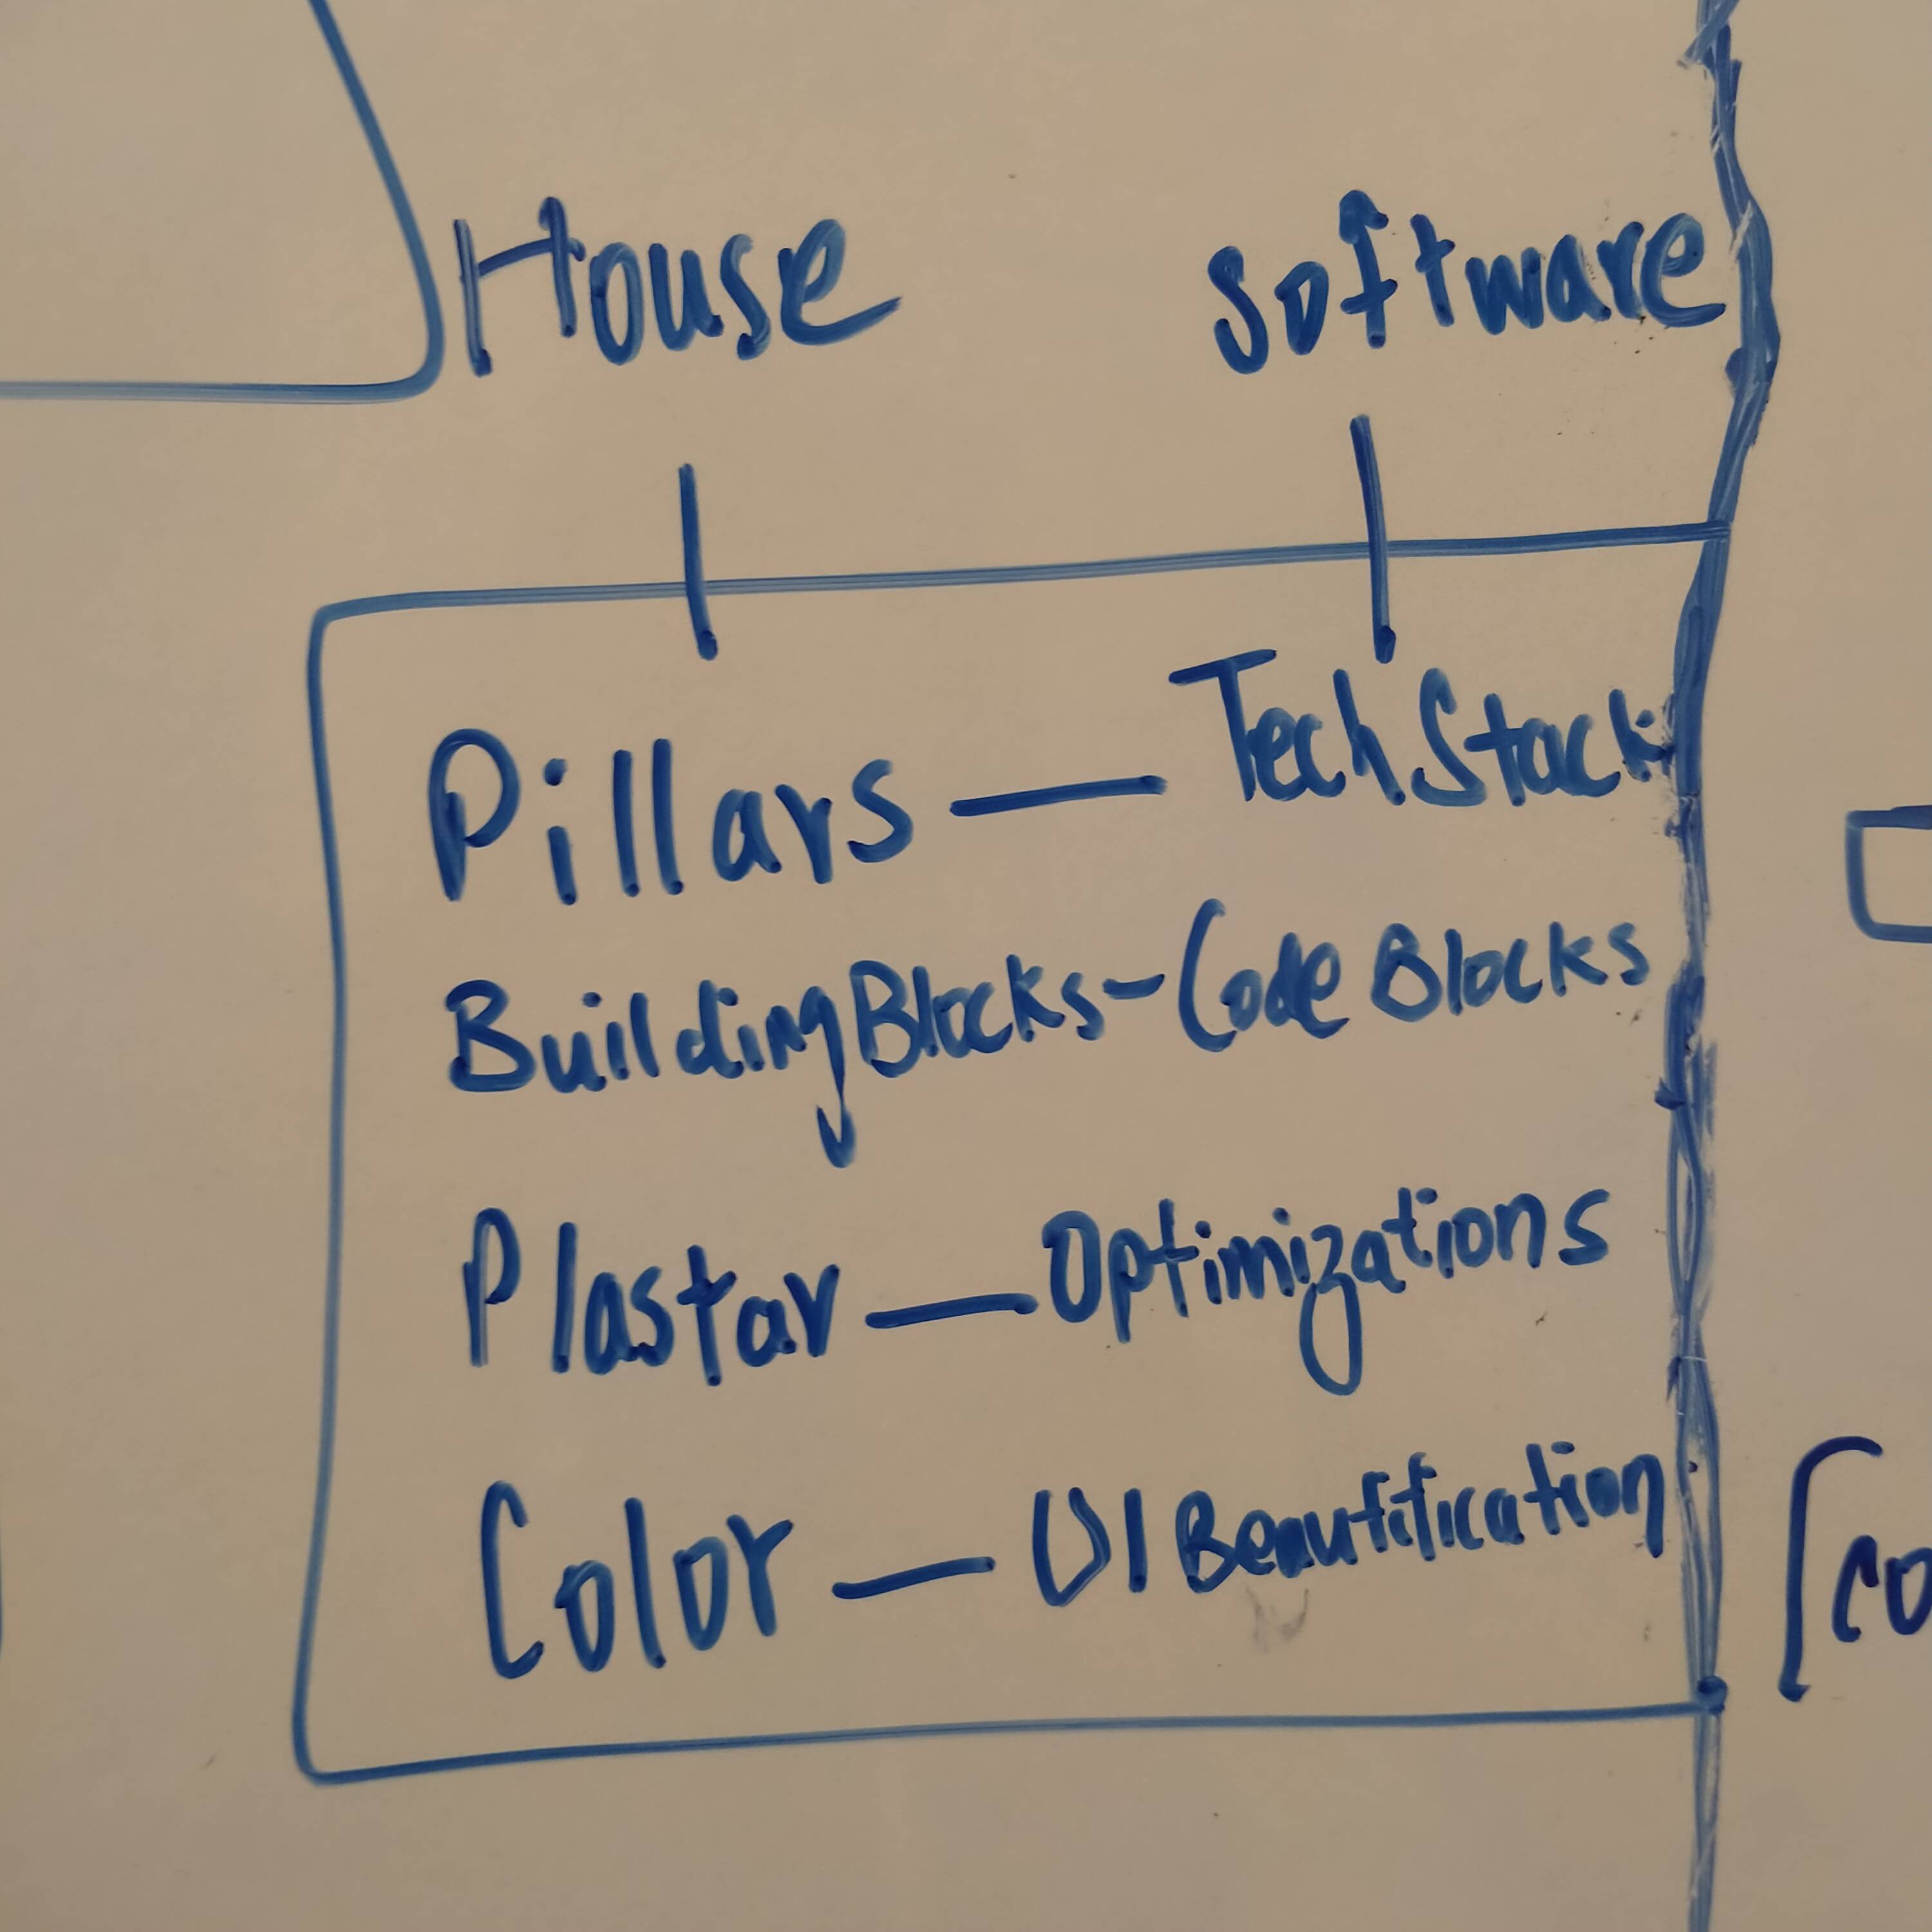 House Software
Pillars — Tech Stack
Building Blocks - Code Blocks
Plastar — Optimizations
Color — UI Beautification
co